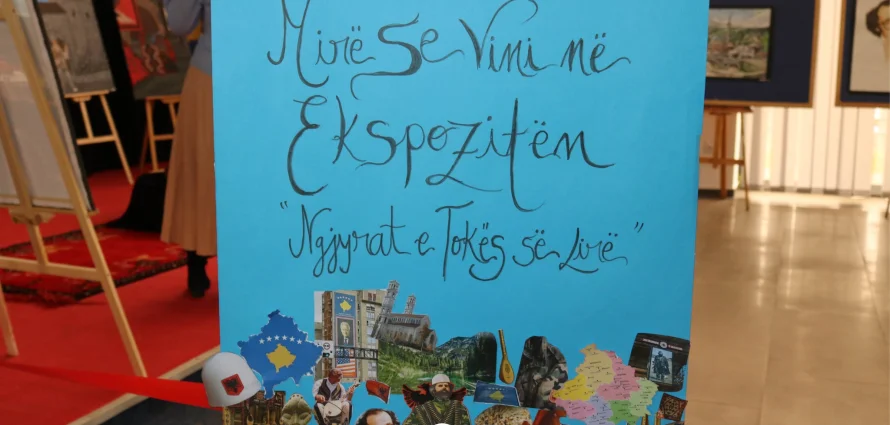 Mirë Se Vini në
Ekspozitën
"Ngjyrat e Tokës së Lirë"